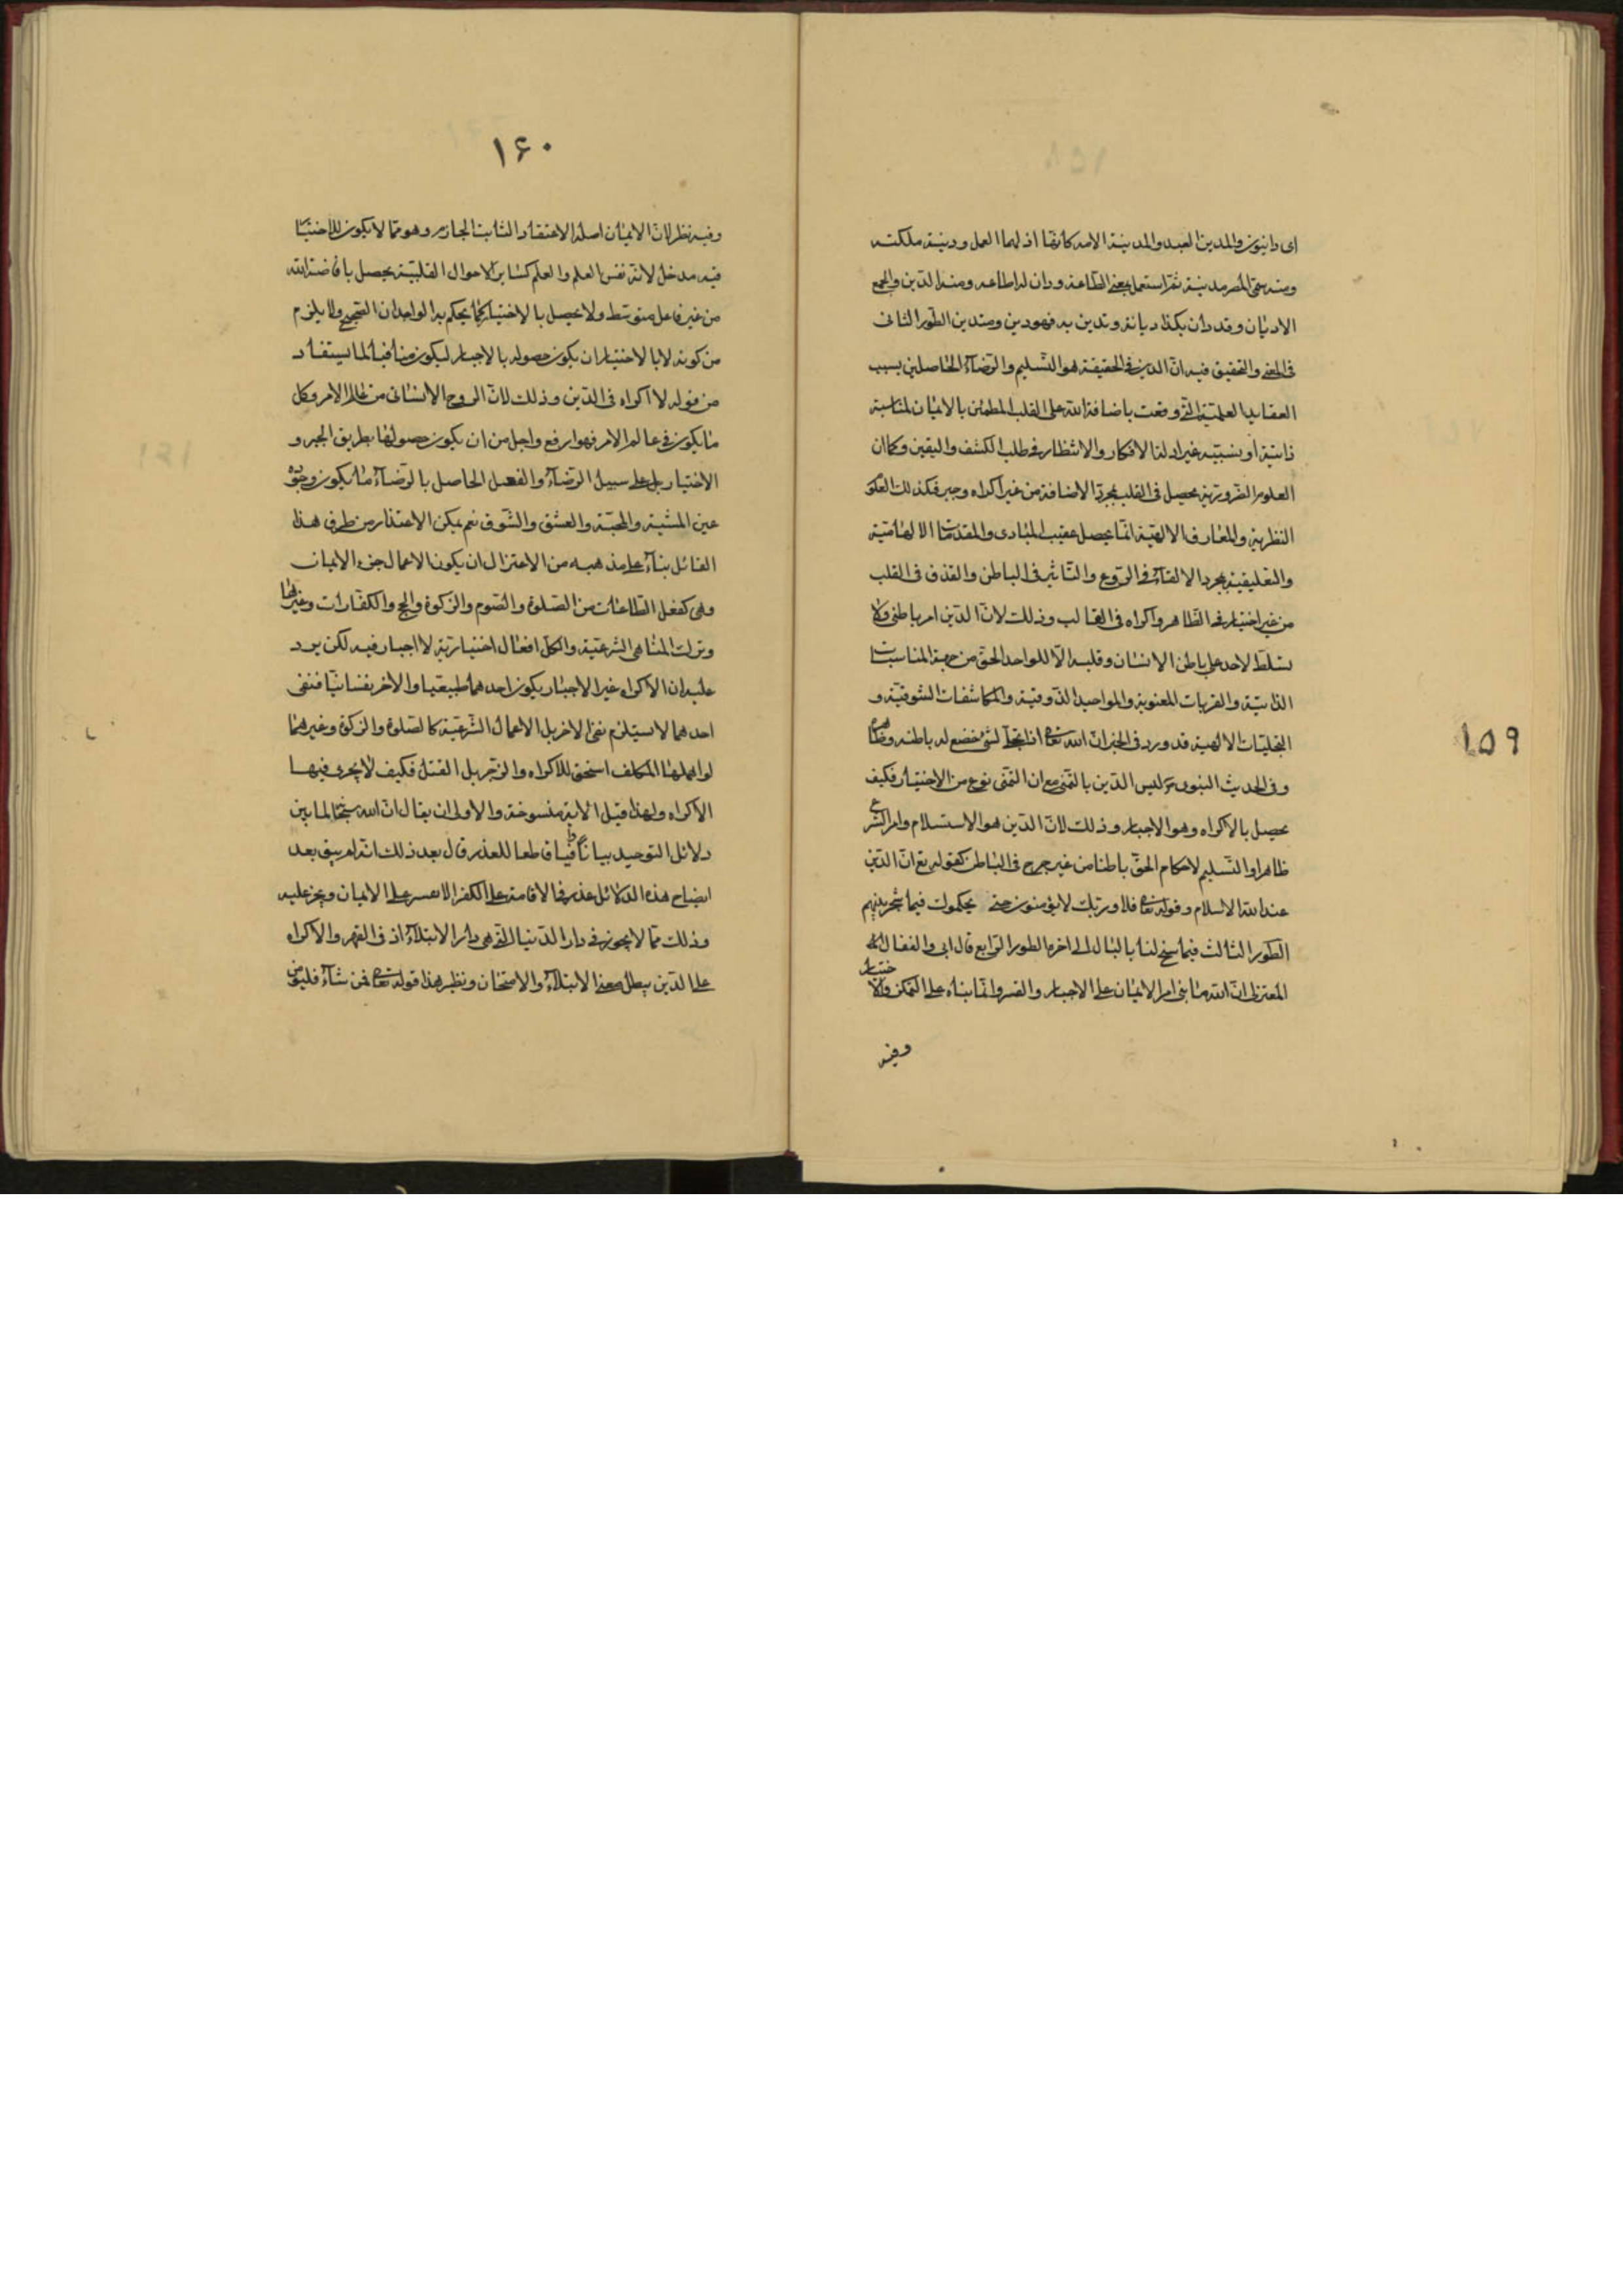 ۱۵۹
اى دانيون والمدين العبد والمدينة الامة كانهما اذلهما العمل ودينة ملكته
ومنه سمى المصر مدينة ثم استعمل بمعنى الطاعة ودان له اطاعه ومنه الدين والجمع
الاديان وقد دان بكذا ديانة وتدين به فهو دين ومتدين الطور الثانى
فى المعنى والتحقيق فيه ان الدين فى الحقيقة هو التسليم والرضاء الحاصلين بسبب
العقايد العلمية التى وقعت باضافة الله على القلب المطمئن بالايمان لمناسبة
ذاتية او بسببية غير ادلة الافكار والانظار فى طلب الكشف واليقين وكما ان
العلوم الضرورية يحصل فى القلب بمجرد الاضافة من غير اكراه وجبر فكذلك العلوم
النظرية والمعارف الالهية انما يحصل عقيب المبادى والمقدمات الالهامية
والتعليقية بمجرد الالقاء فى الروع والتاثير فى الباطن والقذف فى القلب
من غير اختيار فى الظاهر واكراه فى القالب وذلك لان الدين امر باطنى ولا
تسلط لاحد على باطن الانسان وقلبه الا للواحد الحق من جهة المناسبات
الذاتية والقربات المعنوية والمواجيد الذوقية والمكاشفات الشوقية و
التجليات الالهية قد ورد فى الخبر ان الله تعالى اذا تجلى لشئ خضع له باطنه وظاهره
وفى الحديث النبوى ص ليس الدين بالتمنى مع ان التمنى نوع من الاختيار فكيف
يحصل بالاكراه وهو الاجبار وذلك لان الدين هو الاستسلام وامر الشرع
ظاهرا والتسليم لاحكام الحق باطنا من غير حرج فى الباطن كقوله تع ان الدين
عند الله الاسلام وقوله تعالى فلا وربك لا يؤمنون حتى يحكموك فيما شجر بينهم
الطور الثالث فيما سنح لنا بالبال الى اخره الطور الرابع قال ابى والقفال
المعتزلى ان الله ما بنى امر الايمان على الاجبار والقسر وانما بناه على التمكن والاختيار
وفيه
۱۶۰
وفيه نظر لان الايمان اصله الاعتقاد الثابت الجازم وهو مما لا يكون للاختيار
فيه مدخل لانه نفس العلم والعلم كساير الاحوال القلبية يحصل بافاضة الله
من غير فاعل متوسط ولا يحصل بالاختيار كما يحكم به الواجدان الصحيح ولا يلزم
من كونه لا بالاختيار ان يكون حصوله بالاجبار ليكون منافيا لما يستفاد
من قوله لا اكراه فى الدين وذلك لان الروح الانسانى من عالم الامر وكل
ما يكون فى عالم الامر فهو ارفع واجل من ان يكون حصولها بطريق الجبر و
الاختيار بل على سبيل الرضاء والفعل الحاصل بالرضاء ما يكون وجوده
عين المشية والمحبة والعشق والشوق نعم يمكن الاعتذار من طرف هذا
القائل بناء على مذهبه من الاعتزال ان يكون الاعمال جزء الايمان
وهى كفعل الطاعات من الصلوة والصوم والزكوة والحج والكفارات وغيرها
وترك المناهى الشرعية والكل افعال اختيارية لا اجبار فيه لكن يرد
عليه ان الاكراه غير الاجبار يكون احدهما طبيعيا والاخر نفسانيا فنفى
احدهما لا يستلزم نفى الاخر بل الاعمال الشرعية كالصلوة والزكوة وغيرهما
لو اهملها المكلف استحق للاكراه والزجر بل القتل فكيف لا يجرى فيها
الاكراه ولهذا قيل الاية منسوخة والاولى ان يقال ان الله سبحانه لما بين
دلائل التوحيد بيانا شافيا قاطعا للعذر قال بعد ذلك انه لم يبق بعد
ايضاح هذه الدلائل عذر فى الاقامة على الكفر الا قسر على الايمان ويجز عليه
وذلك مما لا يجوز فى دار الدنيا التى هى دار الابتلاء اذ فى القهر والاكراه
على الدين بطل معنى الابتلاء والامتحان ونظير هذا قوله تعالى فمن شاء فليؤمن